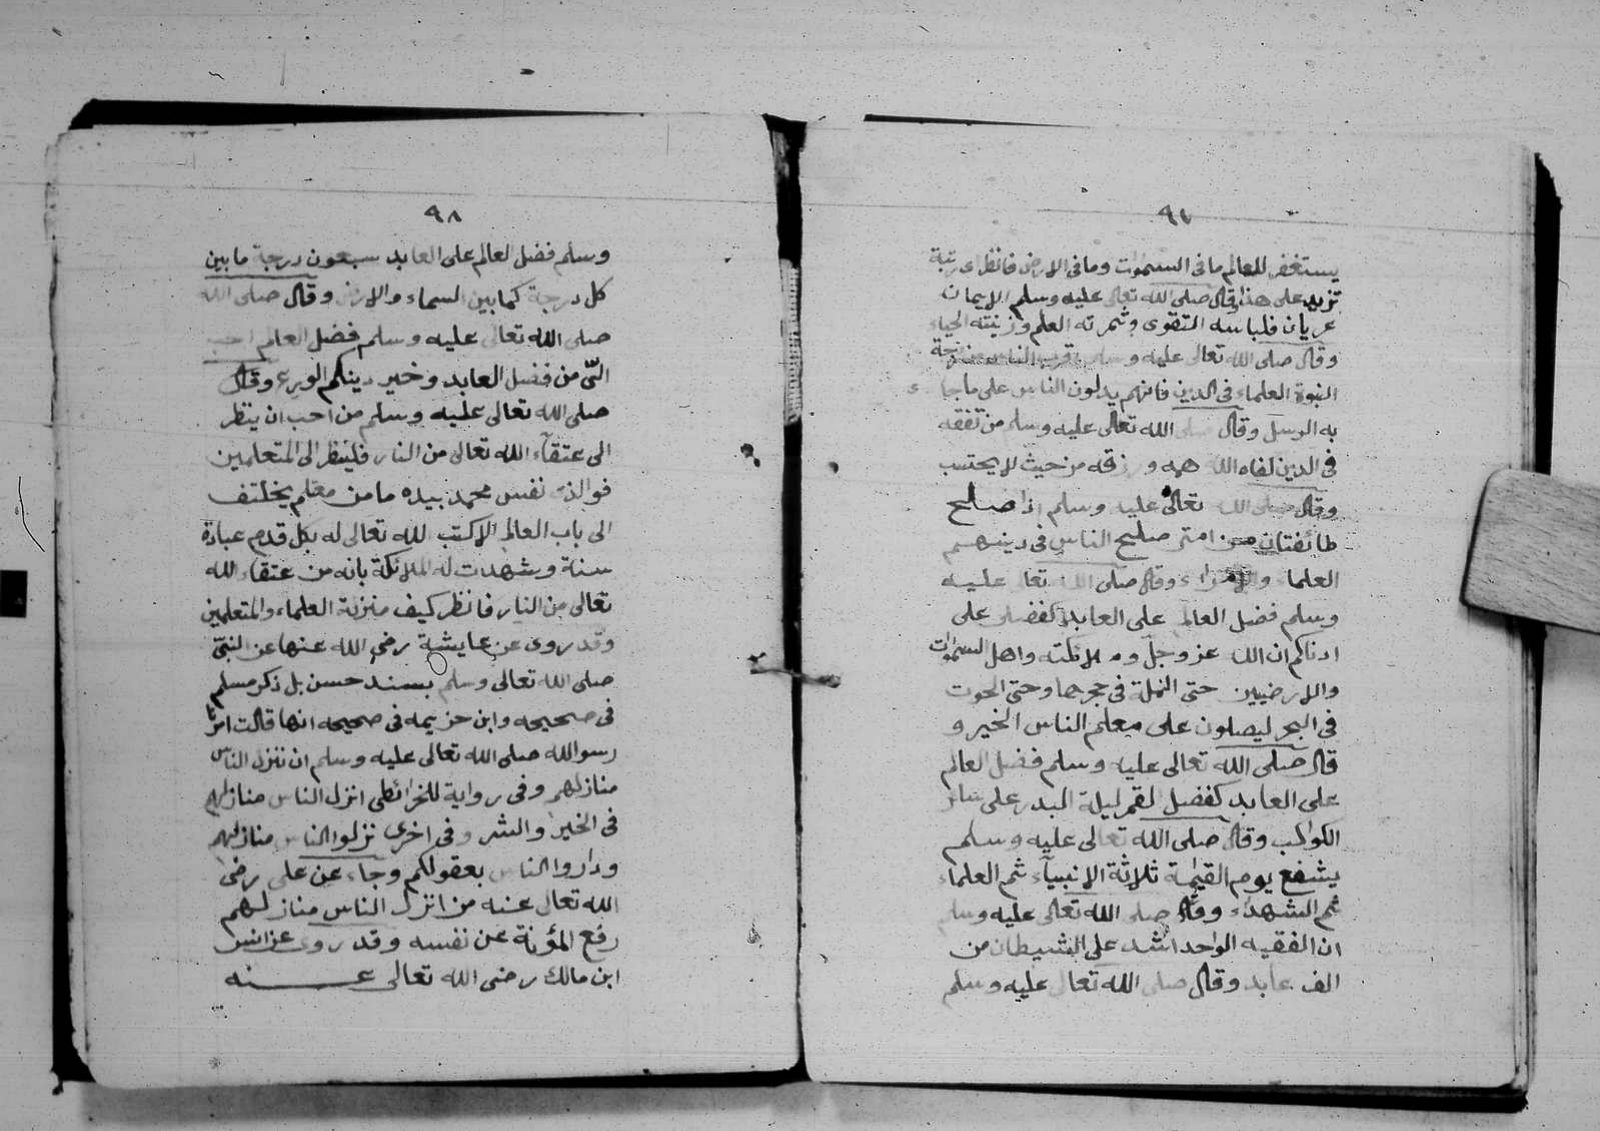 ٩٧
يستغفر للعالم ما فى السموات وما فى الارض فانظر اى رتبة
تزيد على هذا وقال صلى الله تعالى عليه وسلم الايمان
عريان فلباسه التقوى وثمرته العلم وزينته الحياء
وقال صلى الله تعالى عليه وسلم اقرب الناس من درجة
النبوة العلماء فى الدين فانهم يدلون الناس على ما جاء
به الرسل وقال صلى الله تعالى عليه وسلم من تفقه
فى الدين كفاه الله همه ورزقه من حيث لا يحتسب
وقال صلى الله تعالى عليه وسلم اذا صلح
طائفتان من امتى صلح الناس فى دينهم
العلماء والامراء وقال صلى الله تعالى عليه
وسلم فضل العالم على العابد كفضلى على
ادناكم ان الله عز وجل وملائكته واهل السموات
والارضيين حتى النملة فى حجرها وحتى الحوت
فى البحر ليصلون على معلم الناس الخير و
قال صلى الله تعالى عليه وسلم فضل العالم
على العابد كفضل القمر ليلة البدر على سائر
الكواكب وقال صلى الله تعالى عليه وسلم
يشفع يوم القيمة ثلاثة الانبيآء ثم العلماء
ثم الشهداء وقال صلى الله تعالى عليه وسلم
ان الفقيه الواحد اشد على الشيطان من
الف عابد وقال صلى الله تعالى عليه وسلم
٩٨
وسلم فضل العالم على العابد سبعون درجة ما بين
كل درجة كما بين السماء والارض وقال صلى الله
صلى الله تعالى عليه وسلم فضل العالم احب
الىّ من فضل العابد وخير دينكم الورع وقال
صلى الله تعالى عليه وسلم من احب ان ينظر
الى عتقآء الله تعالى من النار فلينظر الى المتعلمين
فوالذى نفس محمد بيده ما من معلم يختلف
الى باب العالم الا كتب الله تعالى له بكل قدم عبادة
سنة وشهدت له الملائكة بانه من عتقاء الله
تعالى من النار فانظر كيف منزلة العلماء والمتعلمين
وقد روى عن عايشة رضى الله عنها عن النبىّ
صلى الله تعالى وسلم بسند حسن بل ذكر مسلم
فى صحيحه وابن خزيمه فى صحيحه انها قالت امرنا
رسوالله صلى الله تعالى عليه وسلم ان ننزل الناس
منازلهم وفى رواية للخرائطى انزل الناس منازلهم
فى الخير والشر وفى اخرى نزلوا الناس منازلهم
وداروا الناس بعقولكم وجاء عن على رضى
الله تعالى عنه من انزل الناس منازلهم
رفع المؤنة عن نفسه وقد روى عن انس
ابن مالك رضى الله تعالى عنه